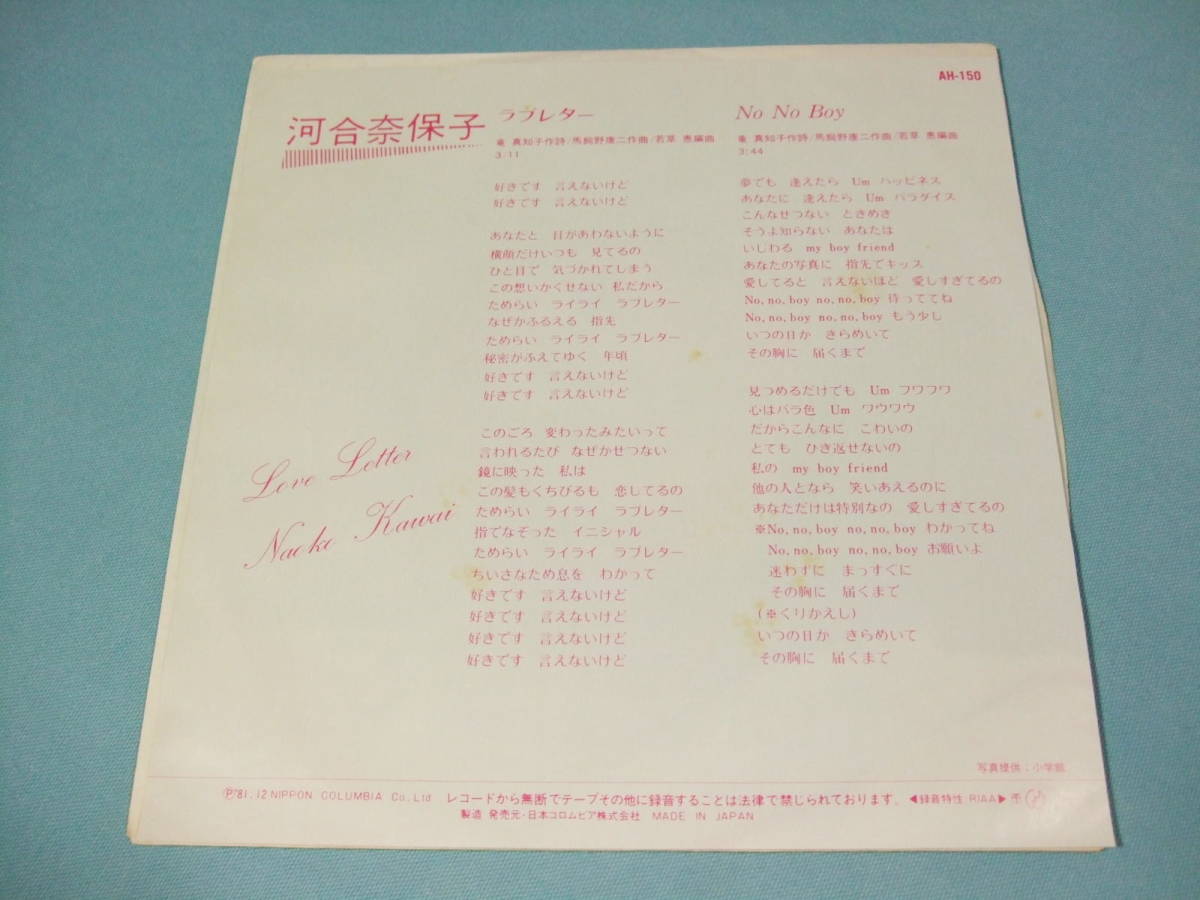 AH-150
河合奈保子
ラブレター
竜 真知子作詩/馬飼野康二作曲/若草 恵編曲
3:11
好きです 言えないけど
好きです 言えないけど
あなたと 目があわないように
横顔だけいつも 見てるの
ひと目で 気づかれてしまう
この想いかくせない 私だから
ためらい ライライ ラブレター
なぜかふるえる 指先
ためらい ライライ ラブレター
秘密がふえてゆく 年頃
好きです 言えないけど
好きです 言えないけど
このごろ 変わったみたいって
言われるたび なぜかせつない
鏡に映った 私は
この髪もくちびるも 恋してるの
ためらい ライライ ラブレター
指でなぞった イニシャル
ためらい ライライ ラブレター
ちいさなため息を わかって
好きです 言えないけど
好きです 言えないけど
好きです 言えないけど
好きです 言えないけど
No No Boy
竜 真知子作詩/馬飼野康二作曲/若草 恵編曲
3:44
夢でも 逢えたら Um ハッピネス
あなたに 逢えたら Um パラダイス
こんなせつない ときめき
そうよ知らない あなたは
いじわる my boy friend
あなたの写真に 指先でキッス
愛してると 言えないほど 愛しすぎてるの
No, no, boy no, no, boy 待っててね
No, no, boy no, no, boy もう少し
いつの日か きらめいて
その胸に 届くまで
見つめるだけでも Um フワフワ
心はバラ色 Um ワウワウ
だからこんなに こわいの
とても ひき返せないの
私の my boy friend
他の人となら 笑いあえるのに
あなただけは特別なの 愛しすぎてるの
※No, no, boy no, no, boy わかってね
No, no, boy no, no, boy お願いよ
迷わずに まっすぐに
その胸に 届くまで
(※くりかえし)
いつの日か きらめいて
その胸に 届くまで
Love Letter
Naoko Kawai
写真提供:小学館
Ⓟ'81.12 NIPPON COLUMBIA Co., Ltd レコードから無断でテープその他に録音することは法律で禁じられております。◀録音特性:RIAA▶
製造 発売元・日本コロムビア株式会社 MADE IN JAPAN